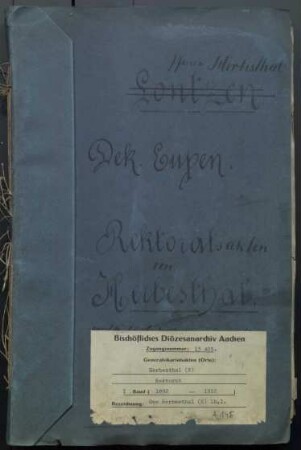 Pfarre Herbesthal
Lontzen
Dek. Eupen.
Rektoratsakten
von
Herbesthal.
Bischöfliches Diözesanarchiv Aachen
Zugangsnummer:
Generalvikariatsakten (Orte):
Herbesthal (R)
Rektorat
1. Band:
Bezeichnung: Gvo Herbesthal (R) Ib,1.